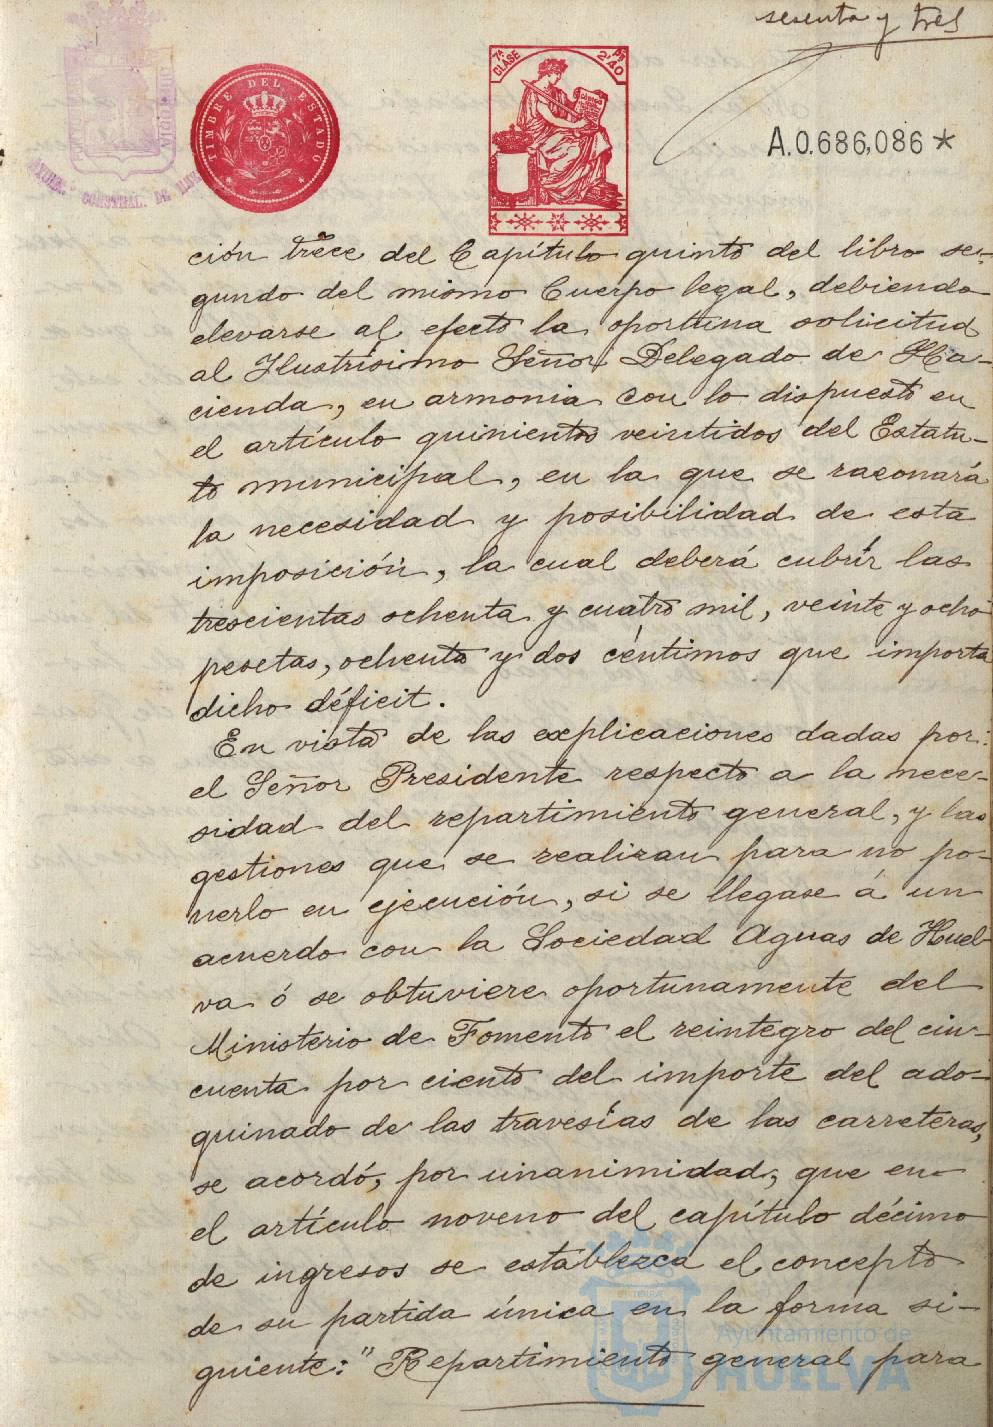 sesenta y tres
TIMBRE DEL ESTADO
7ª CLASE
Pts 2'40
A.0.686,086*
ción trece del Capítulo quinto del libro se-
gundo del mismo Cuerpo legal, debiendo
elevarse al efecto la oportuna solicitud
al Ilustrísimo Señor Delegado de Ha-
cienda, en armonia con lo dispuesto en
el artículo quinientos veintidos del Estatu-
to municipal, en la que se razonará
la necesidad y posibilidad de esta
imposición, la cual deberá cubrir las
trescientas ochenta y cuatro mil, veinte y ocho
pesetas, ochenta y dos céntimos que importa
dicho déficit.
En vista de las explicaciones dadas por
el Señor Presidente respecto a la nece-
sidad del repartimiento general, y las
gestiones que se realizan para no po-
nerlo en ejecución, si se llegase á un
acuerdo con la Sociedad Aguas de Huel-
va ó se obtuviere oportunamente del
Ministerio de Fomento el reintegro del cin-
cuenta por ciento del importe del ado-
quinado de las travesías de las carreteras,
se acordó, por unanimidad, que en
el artículo noveno del capítulo décimo
de ingresos se establezca el concepto
de su partida única en la forma si-
guiente: "Repartimiento general para
Ayuntamiento de
HUELVA